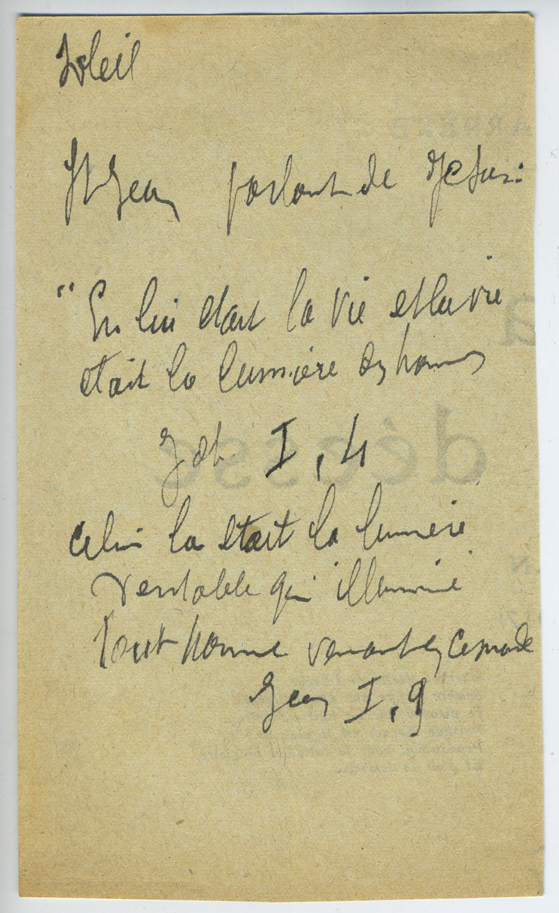 Soleil
St Jean parlant de Jésus:
"En lui était la vie et la vie
était la lumière des hommes
Joh I, 4
celui la était la lumière
veritable qui illumine
tout homme venant en ce monde
Jean I, 9
déesse